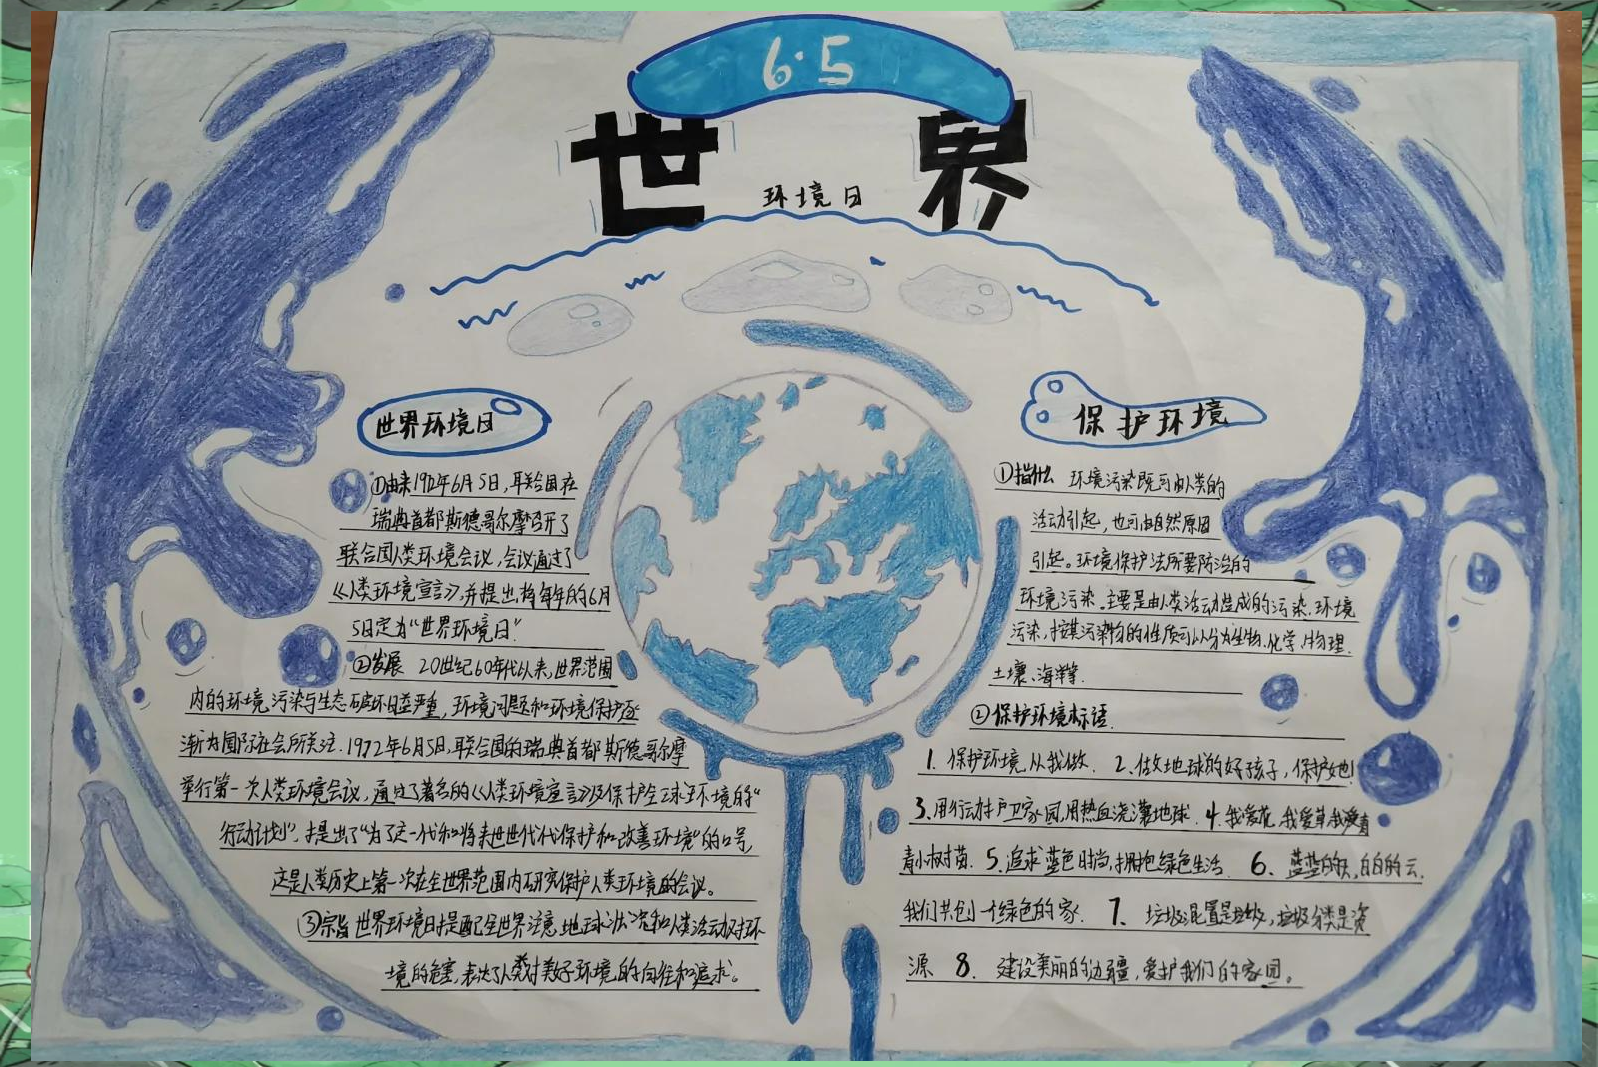 6·5
世界
环境日
世界环境日
①由来1972年6月5日,联合国在
瑞典首都斯德哥尔摩召开了
联合国人类环境会议,会议通过了
《人类环境宣言》,并提出将每年的6月
5日定为“世界环境日”.
②发展 20世纪60年代以来,世界范围
内的环境污染与生态破坏日益严重,环境问题和环境保护逐
渐为国际社会所关注.1972年6月5日,联合国的瑞典首都斯德哥尔摩
举行第一次人类环境会议,通过了著名的《人类环境宣言》及保护全球环境的“
行动计划”,提出了“为了这一代和将来世世代代保护和改善环境”的口号,
这是人类历史上第一次在全世界范围内研究保护人类环境的会议。
③宗旨 世界环境日是配全世界注意地球状况和人类活动对环
境的危害,表达了人类对美好环境的向往和追求。
保护环境
①指什么 环境污染既可由人类的
活动引起,也可由自然原因
引起。环境保护法所要防治的
环境污染.主要是由人类活动造成的污染.环境
污染,按其污染物的性质可以分为生物.化学.物理.
土壤、海洋等.
②保护环境标语.
1. 保护环境,从我做. 2.做地球的好孩子,保护她!
3.用行动护卫家园,用热血浇灌地球. 4.我爱花,我爱草,我爱青
青小树苗. 5.追求蓝色时尚,拥抱绿色生活. 6. 蓝蓝的天,白白的云.
我们共创一个绿色的家. 7. 垃圾混置是垃圾,垃圾分类是资
源 8. 建设美丽的边疆,爱护我们的家园。